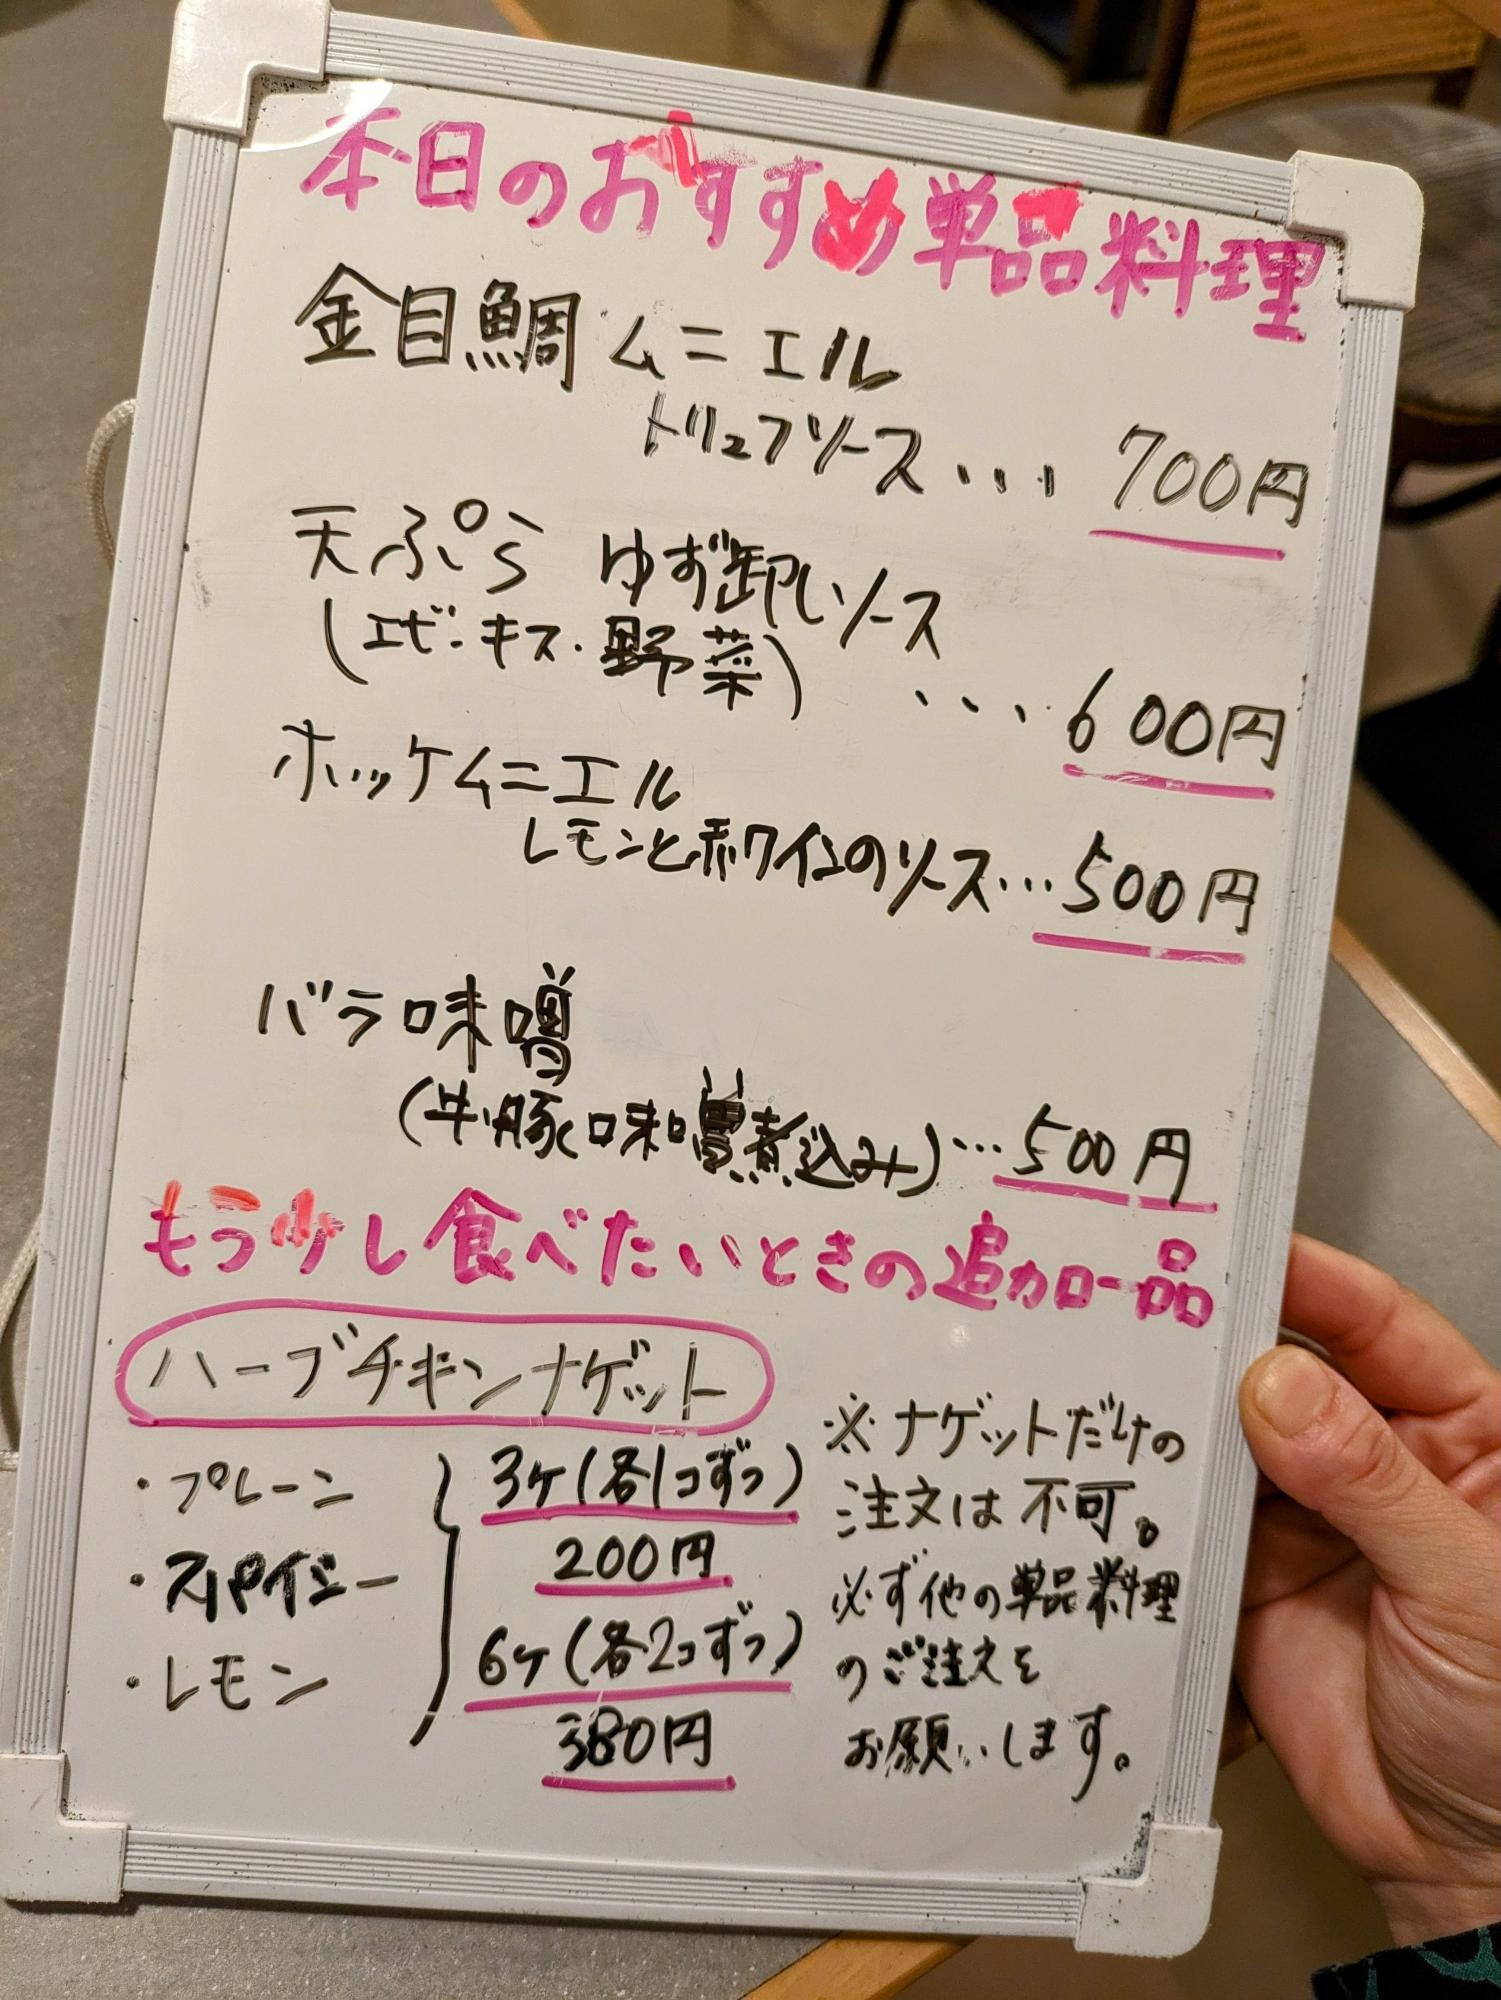 本日のおすすめ単品料理
金目鯛ムニエル
トリュフソース... 700円
天ぷら ゆず卸しソース
(エビ・キス・野菜) ... 600円
ホッケムニエル
レモンと赤ワインのソース... 500円
バラ味噌
(牛・豚味噌煮込み)... 500円
もう少し食べたいときの追加一品
ハーブチキンナゲット
・プレーン
・スパイシー
・レモン
3ケ(各1コずつ)
200円
6ケ(各2コずつ)
380円
※ナゲットだけの
注文は不可。
必ず他の単品料理
のご注文を
お願いします。